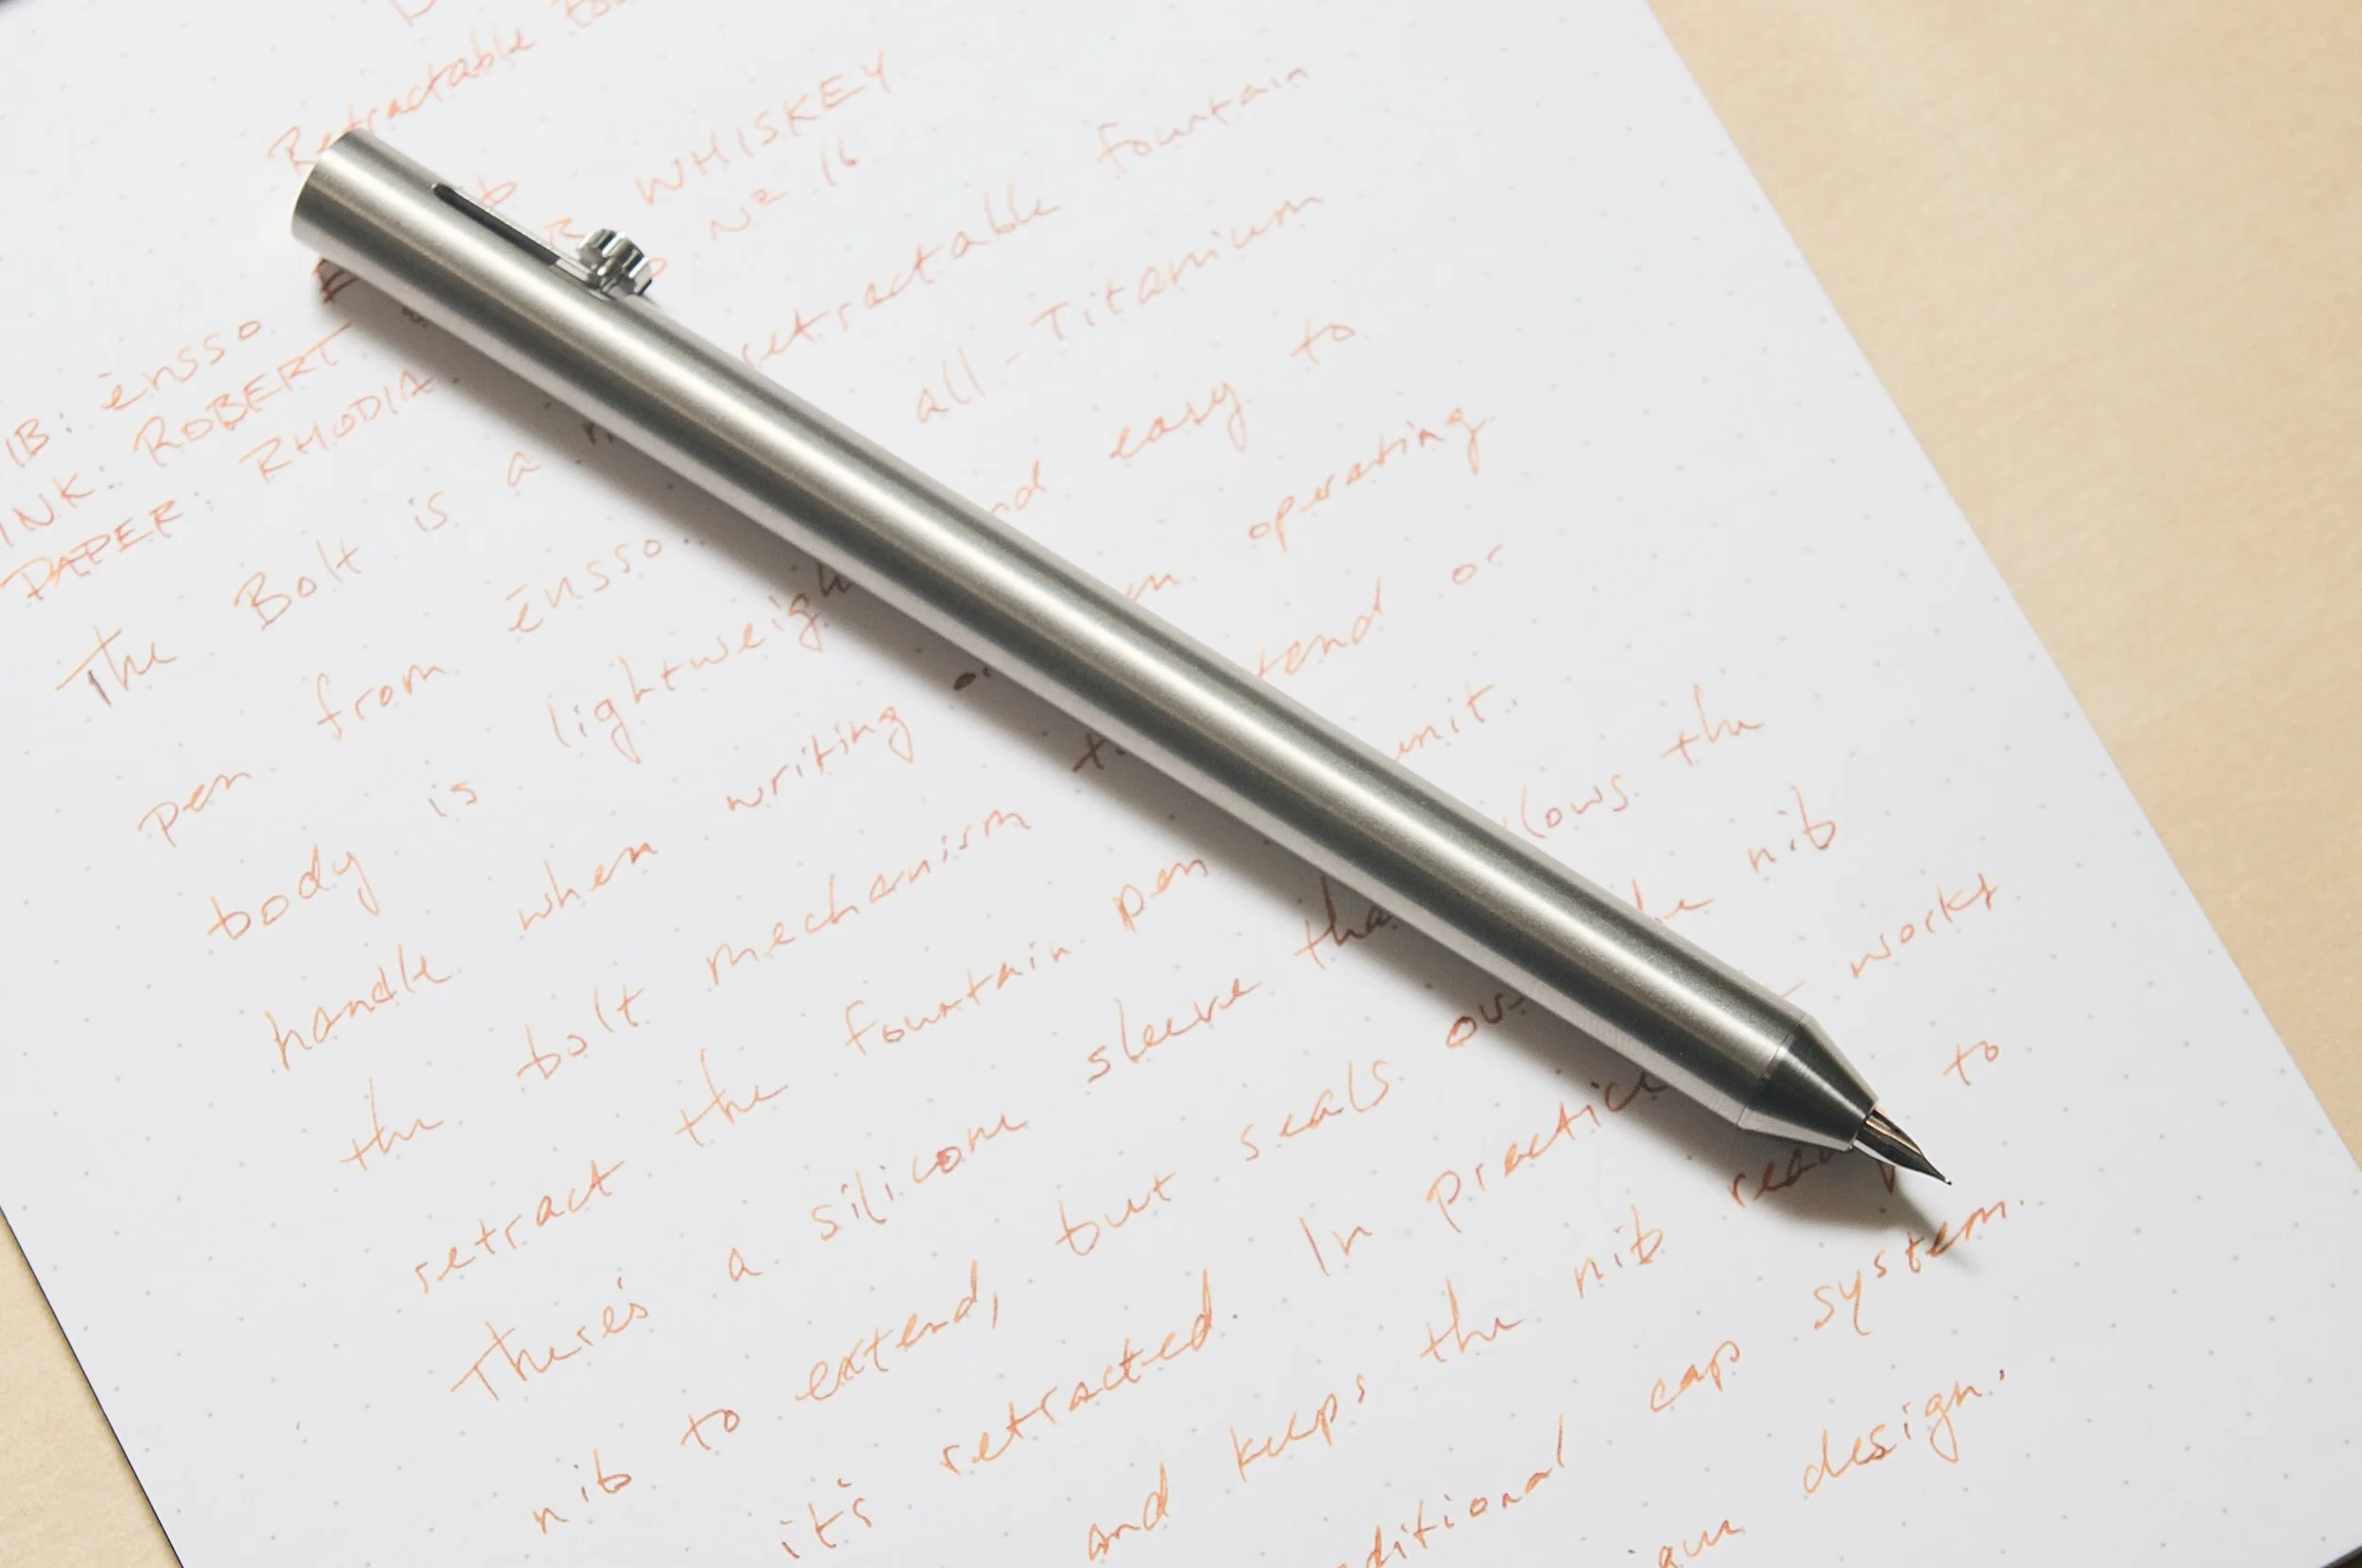 Retractable
WHISKEY
NIB: ensso
INK: ROBERT
Nº 16
PAPER: RHODIA
The Bolt is a retractable fountain
pen from ensso. all-Titanium
body is lightweigh nd easy to
handle when writing or operating
the bolt mechanism t tend or
retract the fountain pen unit.
There's a silicone sleeve tha llows the
nib to extend, but seals ov he nib
it's retracted. In practice works
and keeps the nib ready to
ditional cap system.
design.